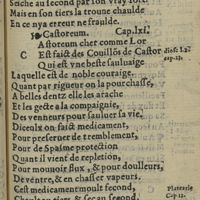 Seiche au second par son vray tout.
Mais en son tiers la trouue chaulde
En ce nya erreur ne fraulde.
Castoreum. Cap.lxi.
Astorum cher comme Lor
C Est faict des Couillõs de Castor diosc. l.2.
Qui est vne beste sauluaige cap.23.
Laquelle est de noble couraige.
Quant par rigueur on la pourchasse,
A belles dentz elle les arache
Et les gecte a la compaignie,
Des venneurs pour sauluer sa vie,
Diceulx on faict medicament,
Pour preseruer de tremblement,
Pour de Spasme protection
Quant il vient de repletion,
Pour mouuoir flux, & pour doulleurs,
De ventre, & en chasser vapeurs.
Cest medicament moult second, Platearie
Chault au tiers & sec au second, Cap.12.